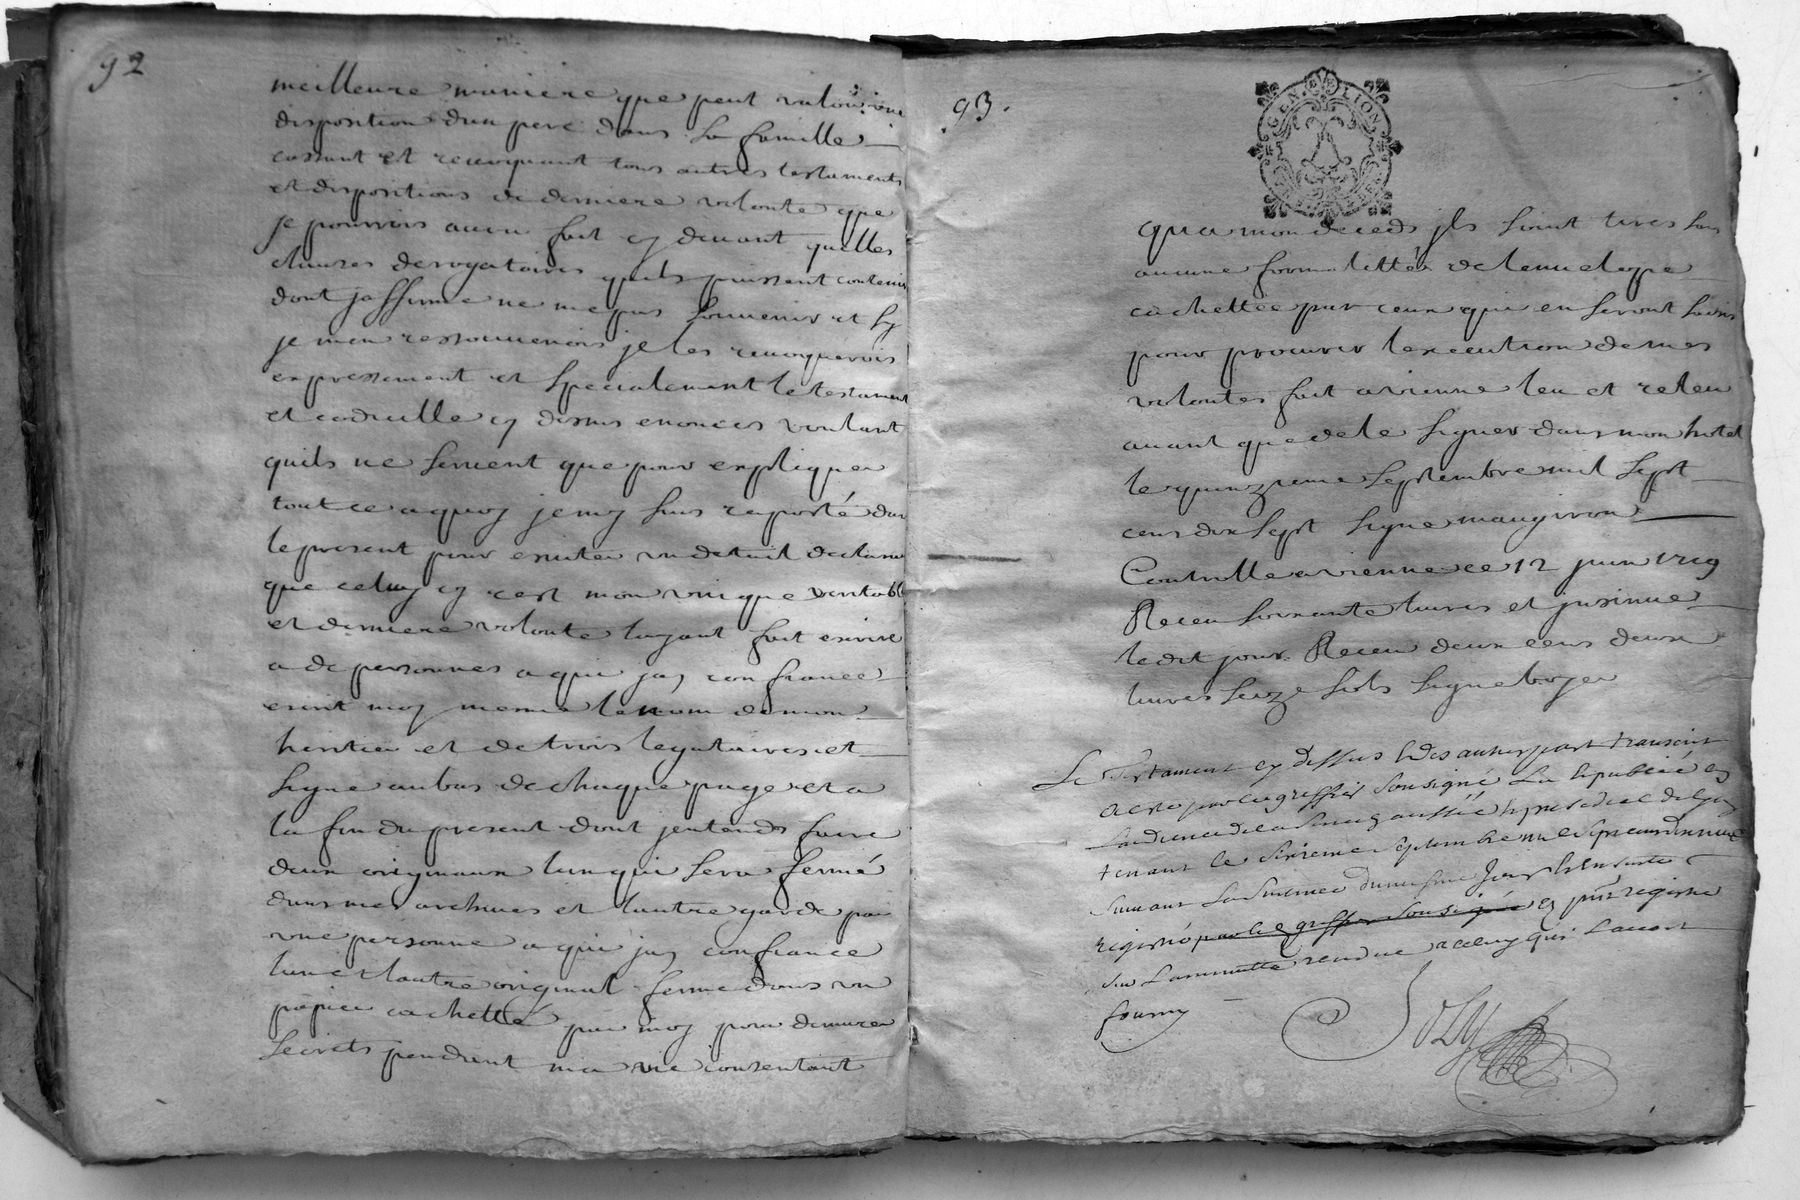 92
meilleure maniere que peut valoir une
disposition dun pere dans sa famille
cassant et revoquant tous autres testaments
et dispositions de derniere volonté que
je pourrois avoir fait cy devant quelles
clauses derogatoires quils puissent contenir
dont jaffirme ne me pas souvenir et sy
je men ressouvenois je les revoquerois
expressement et specialement le testament
et codicille cy dessus enoncés voulant
quils ne servent que pour expliquer
tout ce a quoy je my suis raporté dans
le present pour eviter un detail declarant
que celuy cy est mon unique veritable
et derniere volonté layant fait escrire
a de personnes a qui jay confiance
escrit moy mesme le nom de mon
heritier et de trois legataires et
signe au bas de chaque page et a
la fin du present dont jentends faire
deux originaux lun qui sera fermé
dans mes archives et lautre gardé par
une personne a qui jay confiance
lun et lautre original fermé dans un
papier cacheté par moy pour demurer
secrets pendant ma vie consentant
93.
GEN. DE LION
qua mon deceds jls soient tirés sans
aucune formalitté de lenvelope
cachettée par ceux qui en seront saisis
pour procurer lexecution de mes
volontés fait a vienne leu et releu
avant que de le signer dans mon hotel
le quinzieme septembre mil sept
cens dix sept signe maugiron
Controlle a vienne ce 12 juin 1719
Receu soixante livres et jnsinue
ledit jour Receu deux cens deux
livres seize sols signe boyer
Le Testament cy dessus & des autres part transcrit
a esté par le greffier sousigné Lu & publiée en
Laudience de la Senechaussée & presidial de Lyon
tenant le sixieme septembre mil sept cens dix neuf
suivant La sentence dud mesme Jour & Ensuitte
registré par le greffier sousigné en pnt registre
sur La minutte rendue a celuy qui Lavoit
fourny
Joly